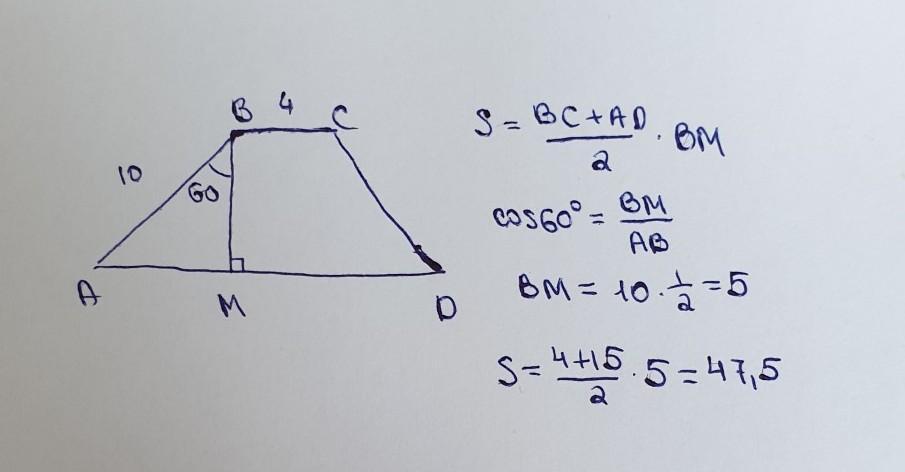 B 4 C
10
60
A M D
S = \frac{BC+AD}{2} · BM
cos60° = \frac{BM}{AB}
BM = 10 · \frac{1}{2} = 5
S = \frac{4+15}{2} · 5 = 47,5